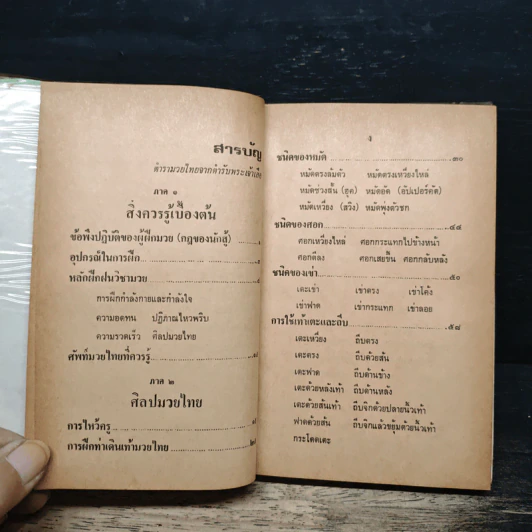 สารบัญ
ตำรามวยไทยจากตำรับพระเจ้าเสือ
ภาค ๑
สิ่งควรรู้เบื้องต้น
ข้อพึงปฏิบัติของผู้ฝึกมวย (กฎของนักสู้)
อุปกรณ์ในการฝึก
หลักฝึกฝนวิชามวย
การฝึกกำลังกายและกำลังใจ
ความอดทน ปฏิภาณไหวพริบ
ความรวดเร็ว ศิลปมวยไทย
ศัพท์มวยไทยที่ควรรู้
ภาค ๒
ศิลปมวยไทย
การไหว้ครู
การฝึกท่าเดินเท้ามวยไทย
ชนิดของหมัด ๓๐
หมัดตรงล้มตัว หมัดตรงเหวี่ยงไหล่
หมัดช่วงสั้น (ฮุค) หมัดอัด (อัปเปอร์คัต)
หมัดเหวี่ยง (สวิง) หมัดพุ่งตัวชก
ชนิดของศอก ๔๔
ศอกเหวี่ยงไหล่ ศอกกระแทกไปข้างหน้า
ศอกตีลง ศอกเสยขึ้น ศอกกลับหลัง
ชนิดของเข่า ๕๐
เตะเข่า เข่าตรง เข่าโค้ง
เข่าฟาด เข่ากระแทก เข่าลอย
การใช้เท้าเตะและถีบ ๕๘
เตะเหวี่ยง ถีบตรง
เตะตรง ถีบด้วยส้น
เตะฟาด ถีบด้านข้าง
เตะด้วยหลังเท้า ถีบด้านหลัง
เตะด้วยส้นเท้า ถีบจิกด้วยปลายนิ้วเท้า
ฟาดด้วยส้น ถีบจิกแล้วขยุ้มด้วยนิ้วเท้า
กระโดดเตะ